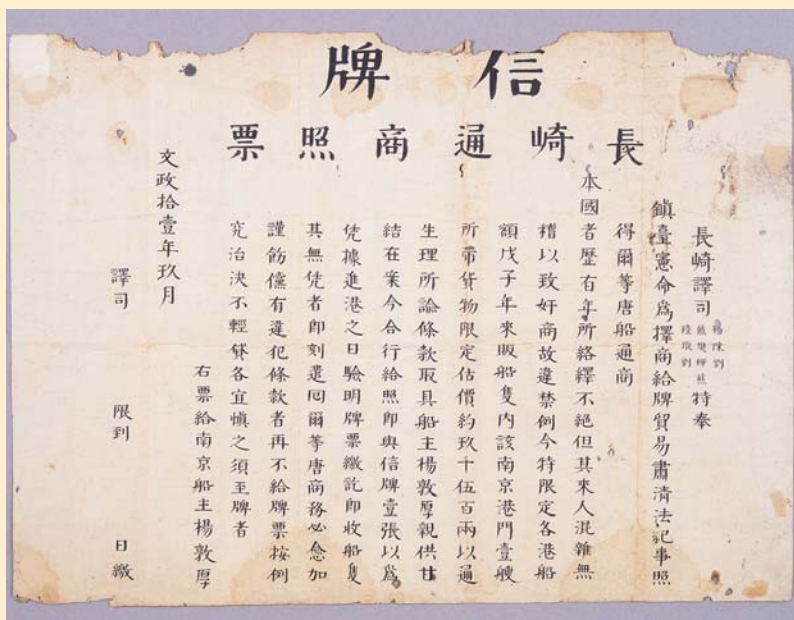 信牌
長崎通商照票
長崎譯司
特奉
鎮臺憲命爲擇商給牌貿易肅清法紀事照
得爾等唐船通商
本國者歷有年所絡繹不絕但其來人混雜無
稽以致奸商故違禁例今特限定各港船
額戊子年來販船隻內該南京港門壹艘
所帶貨物限定估價約玖千伍百兩以通
生理所諭條款取具船主楊敦厚親供甘
結在案今合行給照即與信牌壹張以爲
凭據進港之日驗明牌票繳訖即收船隻
其無凭者即刻遣回爾等唐商務必愈加
謹飭儻有違犯條款者再不給牌票按例
究治決不輕貸各宜愼之須至牌者
右票給南京船主楊敦厚
文政拾壹年玖月
譯司
限到 日繳